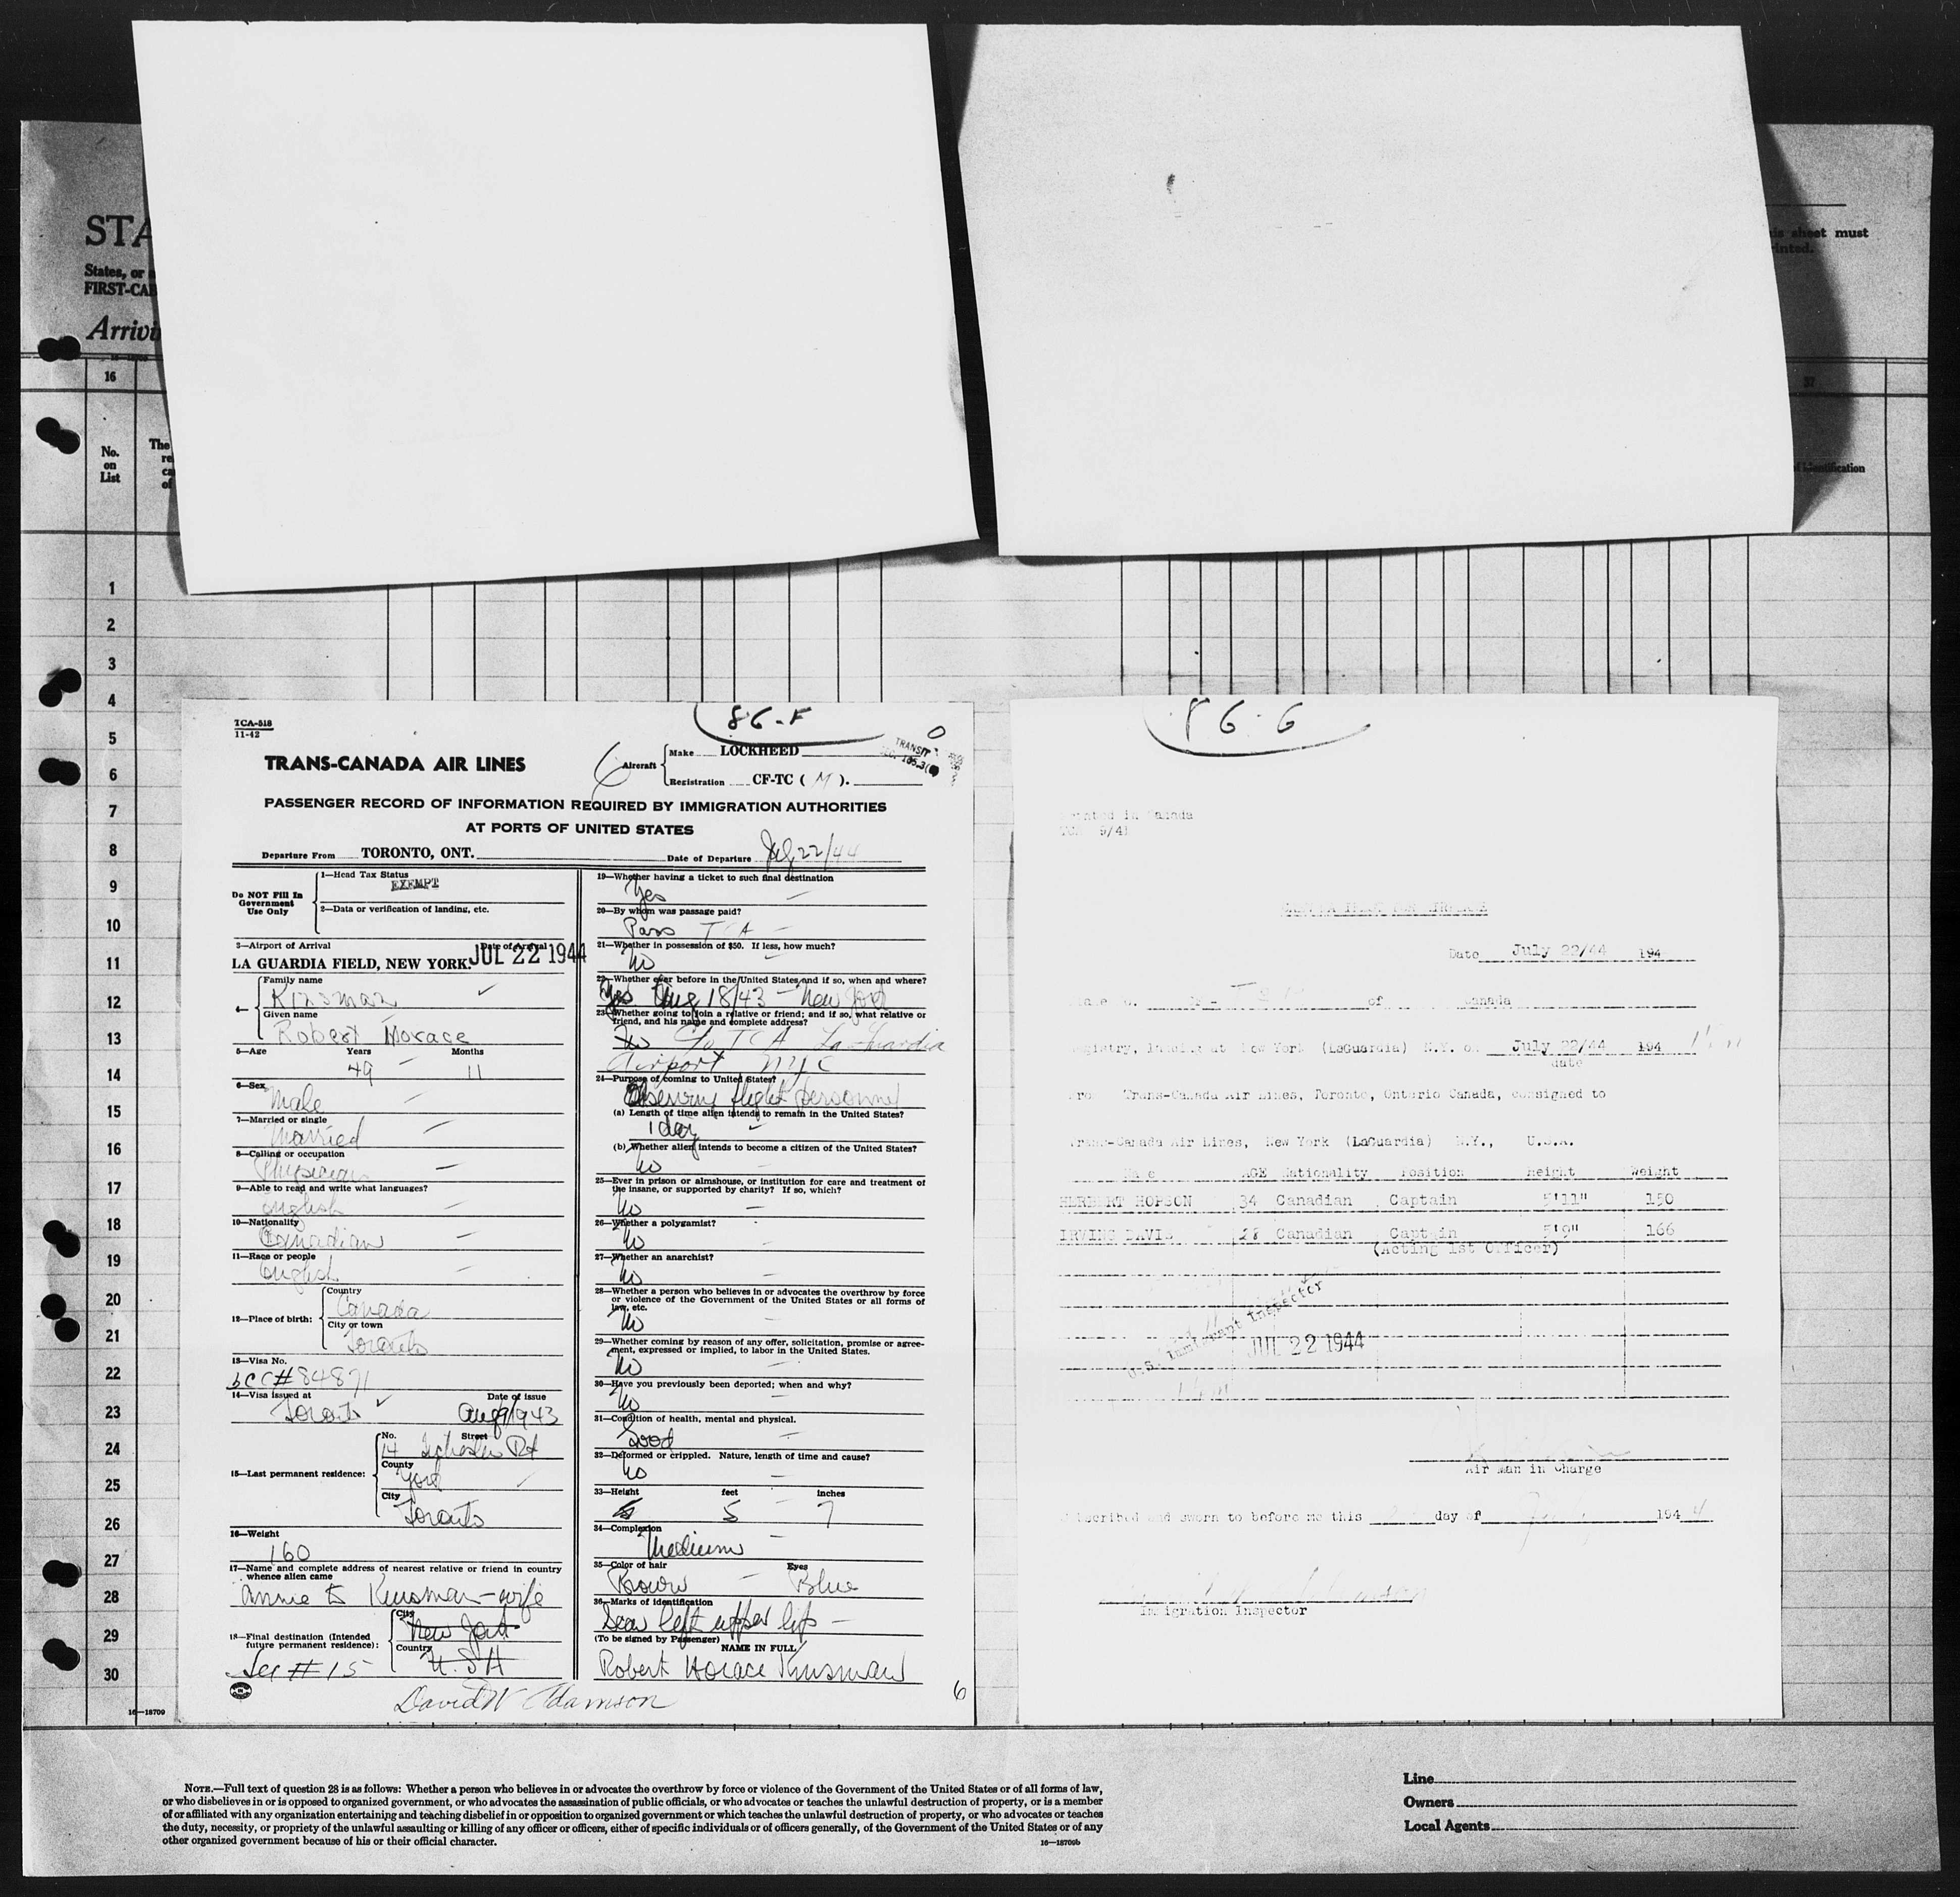 STA
States, or
FIRST-CAB
Arrivi
is sheet must
inted.
16
37
No.
on
List
The
re
ca
of
of identification
1
2
3
4
5
6
7
8
9
10
11
12
13
14
15
16
17
18
19
20
21
22
23
24
25
26
27
28
29
30
16—18709
TCA-518
11-42
86-F
0
TRANS-CANADA AIR LINES
6
Aircraft
Make LOCKHEED
Registration CF-TC ( M ).
TRANSIT
PASSENGER RECORD OF INFORMATION REQUIRED BY IMMIGRATION AUTHORITIES
AT PORTS OF UNITED STATES
Departure From TORONTO, ONT. Date of Departure July 22/44
Do NOT Fill In
Government
Use Only
1—Head Tax Status
EXEMPT
2—Data or verification of landing, etc.
3—Airport of Arrival Date of Arrival
LA GUARDIA FIELD, NEW YORK. JUL 22 1944
4—
Family name
Kinsman
Given name
Robert Horace
5—Age Years Months
49 11
6—Sex
Male
7—Married or single
Married
8—Calling or occupation
Physician
9—Able to read and write what languages?
English
10—Nationality
Canadian
11—Race or people
English
12—Place of birth:
Country
Canada
City or town
Toronto
13—Visa No.
BCC# 84871
14—Visa issued at Date of issue
Toronto Aug 9/1943
15—Last permanent residence:
No. Street
14 Rd
County
York
City
Toronto
16—Weight
160
17—Name and complete address of nearest relative or friend in country
whence alien came
Annie E Kinsman - wife
18—Final destination (Intended
future permanent residence):
City
New York
Country
U.S.A
See #15
19—Whether having a ticket to such final destination
Yes
20—By whom was passage paid?
Pass TCA
21—Whether in possession of $50. If less, how much?
No
22—Whether ever before in the United States and if so, when and where?
Yes Aug 18/43 - New York
23—Whether going to join a relative or friend; and if so, what relative or
friend, and his name and complete address?
No c/o TCA La Guardia
Airport NYC
24—Purpose of coming to United States?
Observing flight personnel
(a) Length of time alien intends to remain in the United States?
1 day
(b) Whether alien intends to become a citizen of the United States?
No
25—Ever in prison or almshouse, or institution for care and treatment of
the insane, or supported by charity? If so, which?
No
26—Whether a polygamist?
No
27—Whether an anarchist?
No
28—Whether a person who believes in or advocates the overthrow by force
or violence of the Government of the United States or all forms of
law, etc.
No
29—Whether coming by reason of any offer, solicitation, promise or agree-
ment, expressed or implied, to labor in the United States.
No
30—Have you previously been deported; when and why?
No
31—Condition of health, mental and physical.
Good
32—Deformed or crippled. Nature, length of time and cause?
No
33—Height feet inches
5 7
34—Complexion
Medium
35—Color of hair Eyes
Brown Blue
36—Marks of identification
Scar left upper lip -
(To be signed by Passenger) NAME IN FULL
Robert Horace Kinsman
David W Adamson
6
86-G
Printed in Canada
9/41
Date July 22/44 194
of Canada
Registry, landing at New York (LaGuardia) N.Y. on July 22/44 194
date
From Trans-Canada Air Lines, Toronto, Ontario Canada, consigned to
Trans-Canada Air Lines, New York (LaGuardia) N.Y., U.S.A.
Name AGE Nationality Position Height Weight
HERBERT HOPSON 34 Canadian Captain 5'11" 150
IRVING DAVIS 28 Canadian Captain 5'9" 166
(Acting 1st Officer)
U.S. Immigrant Inspector
JUL 22 1944
Air Man in Charge
Subscribed and sworn to before me this day of 1944
Immigration Inspector
NOTE.—Full text of question 28 is as follows: Whether a person who believes in or advocates the overthrow by force or violence of the Government of the United States or of all forms of law,
or who disbelieves in or is opposed to organized government, or who advocates the assassination of public officials, or who advocates or teaches the unlawful destruction of property, or is a member
of or affiliated with any organization entertaining and teaching disbelief in or opposition to organized government or which teaches the unlawful destruction of property, or who advocates or teaches
the duty, necessity, or propriety of the unlawful assaulting or killing of any officer or officers, either of specific individuals or of officers generally, of the Government of the United States or of any
other organized government because of his or their official character.
16—18709b
Line
Owners
Local Agents